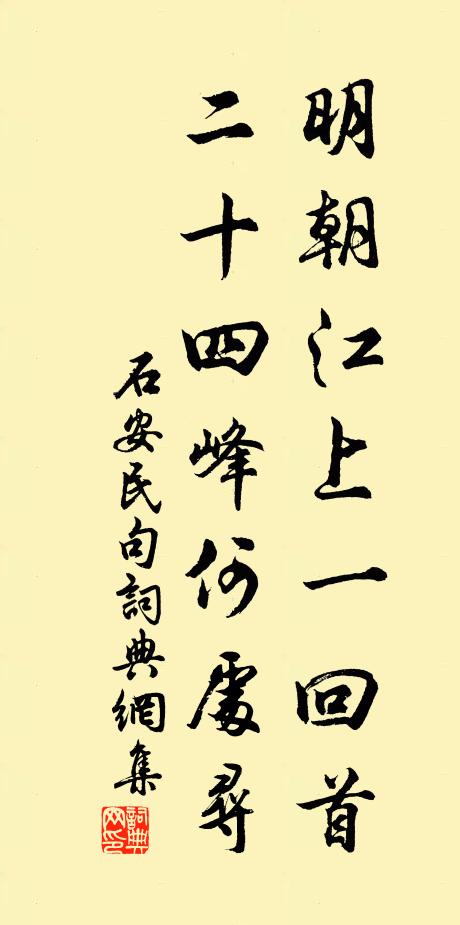 明朝江上一回首
二十四峰何處尋
石安民句詞典網集
詞典网印